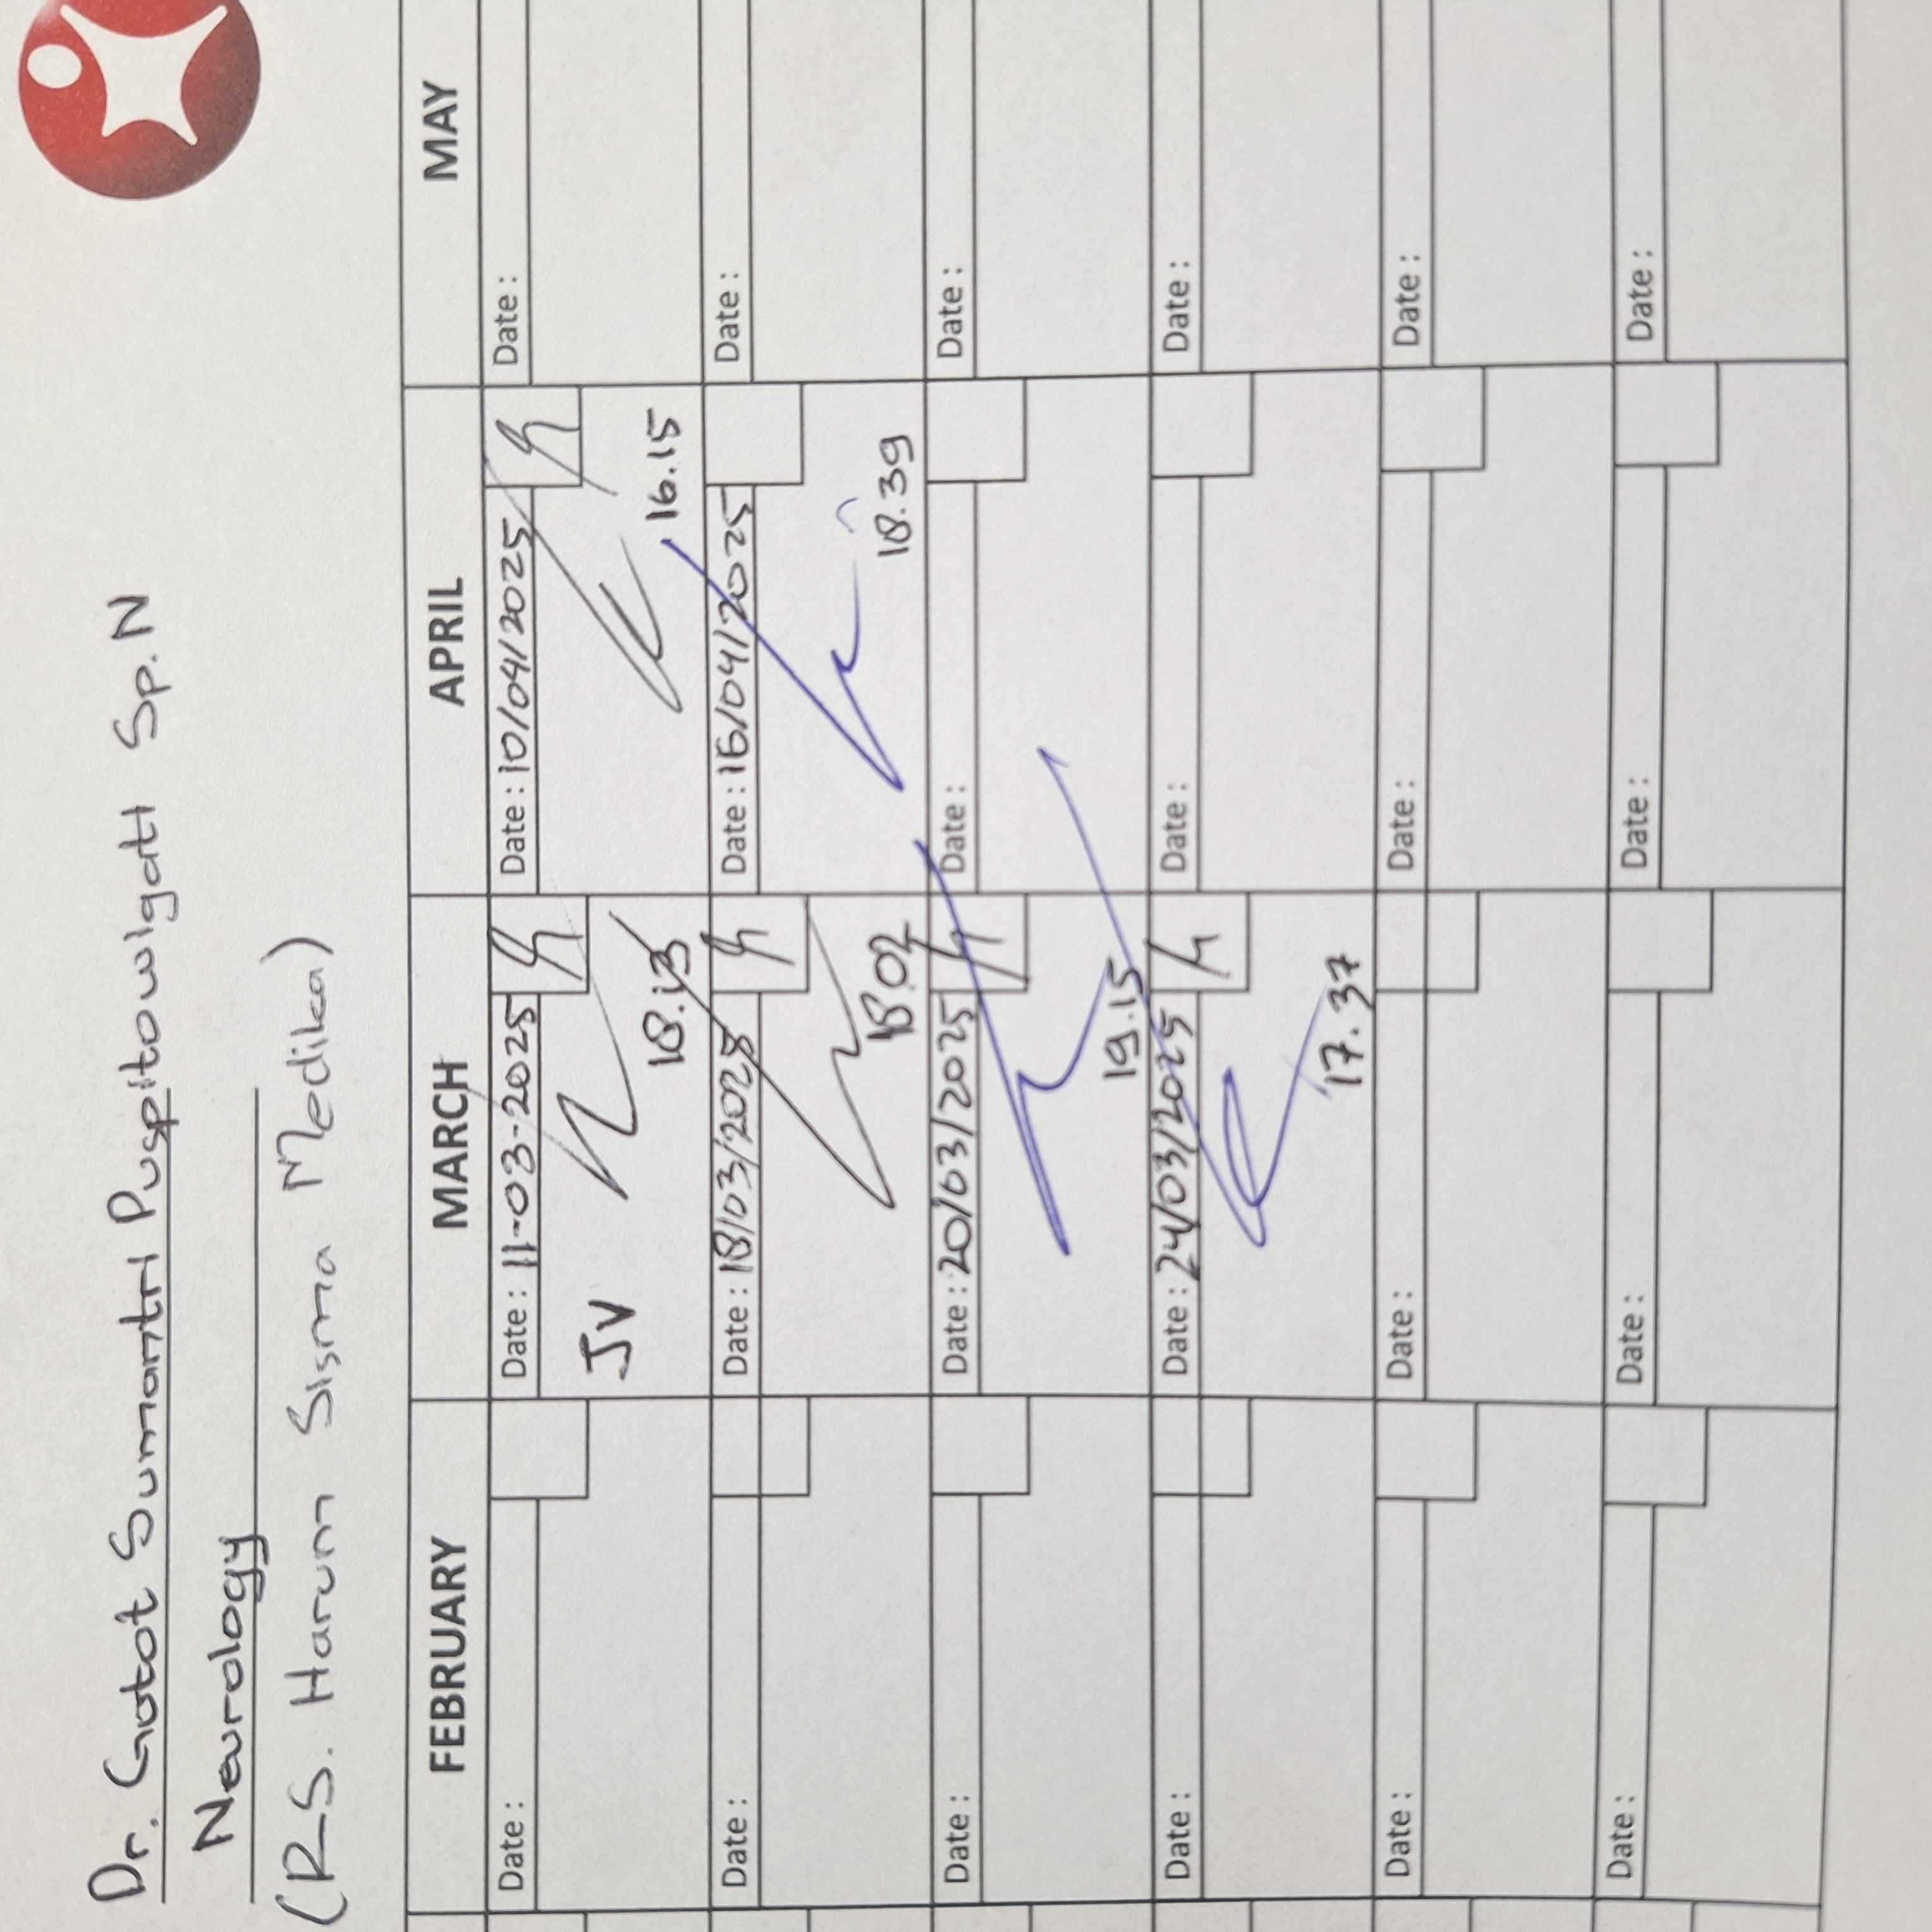 Dr. Gatot Sumantri Puspitowigati Sp.N
Neurology
(R.S. Harum Sisma Medika)
FEBRUARY MARCH APRIL MAY
Date : Date : 11-03-2025 Date : 10/04/2025 Date :
JV
18.13 16.15
Date : Date : 18/03/2025 Date : 16/04/2025 Date :
18.02 18.39
Date : Date : 20/03/2025 Date : Date :
19.15
Date : Date : 24/03/2025 Date : Date :
17.37
Date : Date : Date : Date :
Date : Date : Date : Date :